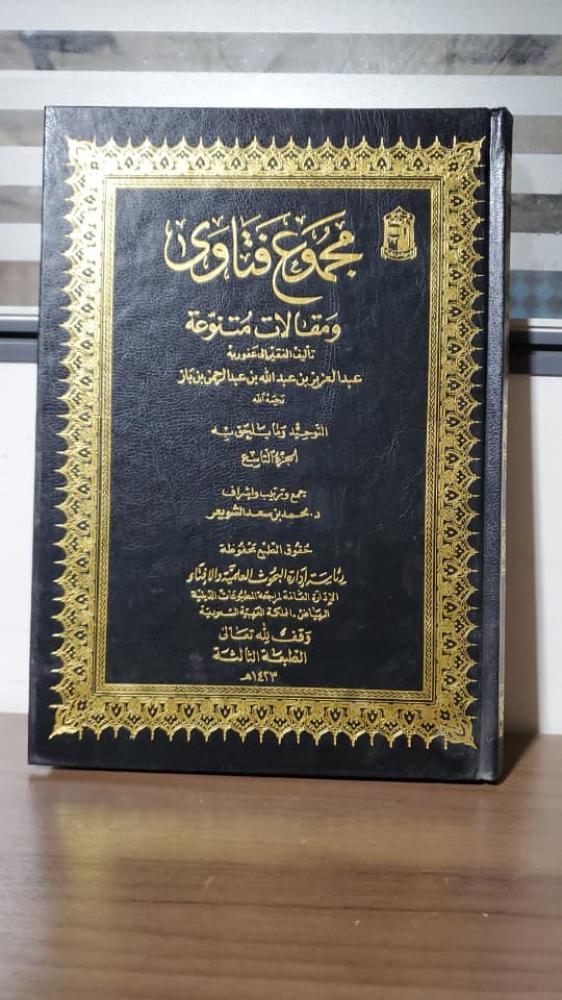 مجموع فتاوى
ومقالات متنوعة
تأليف الفقير إلى عفو ربه
عبد العزيز بن عبد الله بن عبد الرحمن بن باز
رحمه الله
التوحيد وما يلحق به
الجزء التاسع
جمع وترتيب وإشراف
د. محمد بن سعد الشويعر
حقوق الطبع محفوظة
رئاسة إدارة البحوث العلمية والإفتاء
الإدارة العامة لمراجعة المطبوعات الدينية
الرياض - المملكة العربية السعودية
وقف لله تعالى
الطبعة الثالثة
١٤٢٣هـ